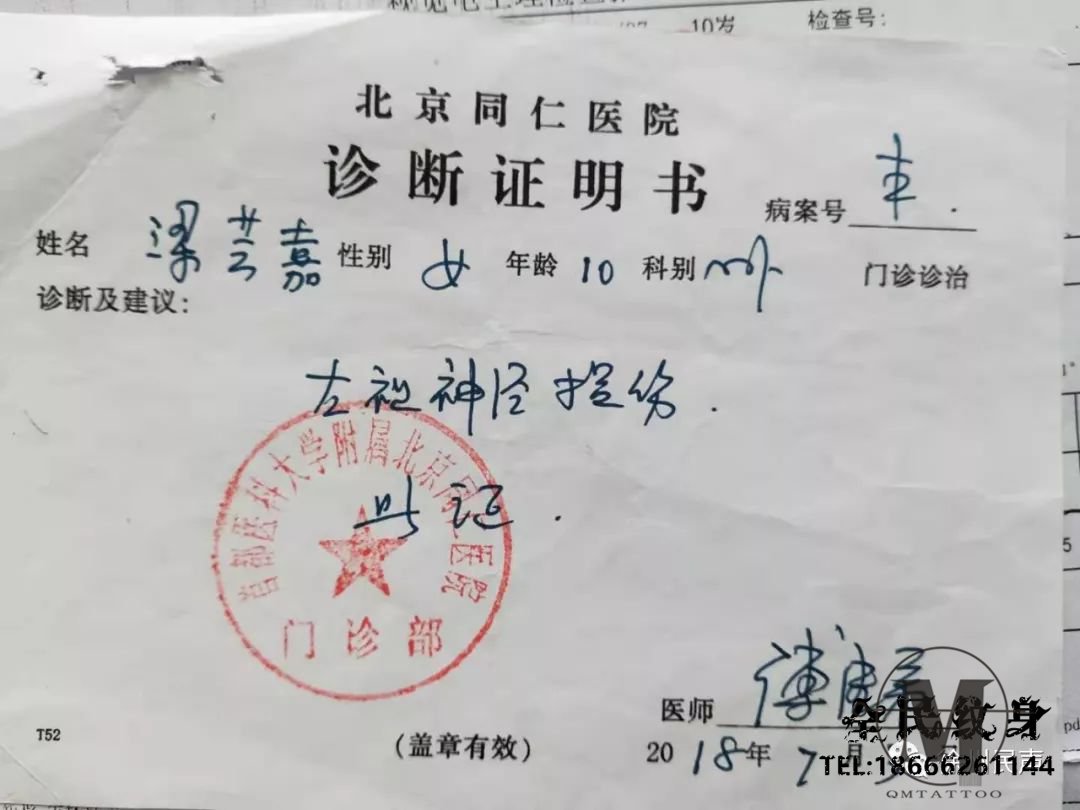 10岁 检查号：
北京同仁医院
诊断证明书
病案号
姓名 梁芸嘉 性别 女 年龄 10 科别 门诊诊治
诊断及建议：
左视神经损伤.
此证.
首都医科大学附属北京同仁医院
门诊部
医师
T52
(盖章有效)
2018年7月
全民纹身
TEL:18666261144
QMTATTOO